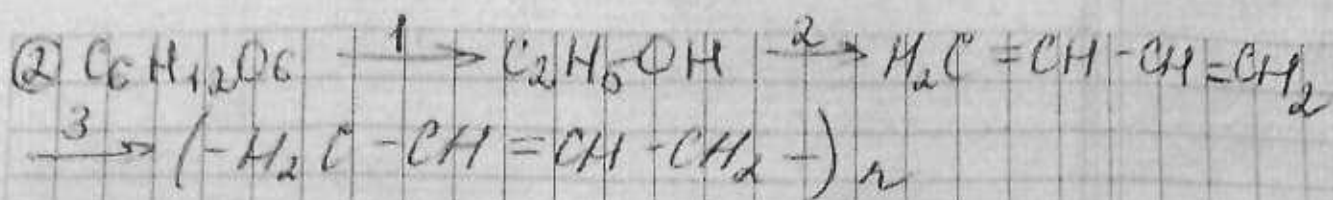 ② C₆H₁₂O₆ —1→ C₂H₅OH —2→ H₂C=CH-CH=CH₂
—3→ (-H₂C-CH=CH-CH₂-)n